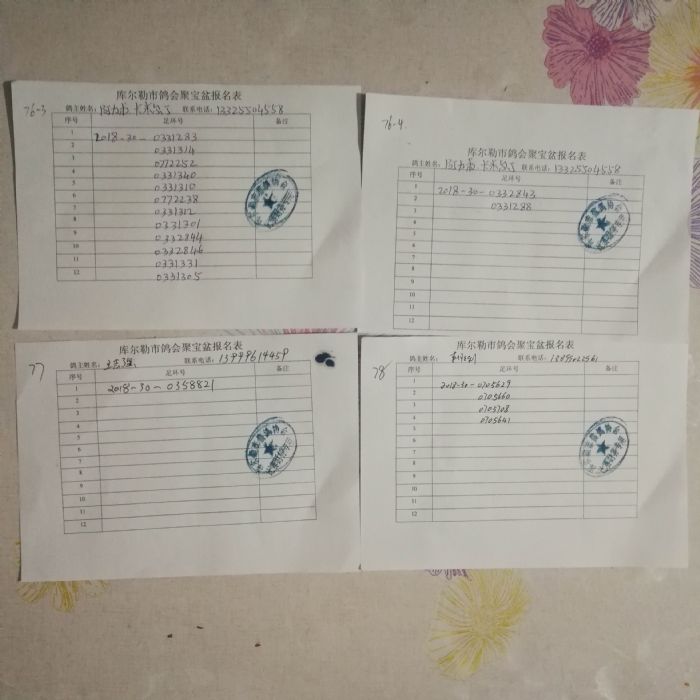 76-3
库尔勒市鸽会聚宝盆报名表
鸽主姓名: 联系电话: 13325504558
序号 足环号 备注
1 2018-30-0331283
2 0331314
3 0772252
4 0331340
5 0331310
6 0772238
7 0331312
8 0331301
9 0332844
10 0332846
11 0331331
12 0331305
76-4
库尔勒市鸽会聚宝盆报名表
鸽主姓名: 联系电话: 13325504558
序号 足环号 备注
1 2018-30-0332843
2 0331288
3
4
5
6
7
8
9
10
11
12
77
库尔勒市鸽会聚宝盆报名表
鸽主姓名: 联系电话: 13999619459
序号 足环号 备注
1 2018-30-0358821
2
3
4
5
6
7
8
9
10
11
12
78
库尔勒市鸽会聚宝盆报名表
鸽主姓名: 联系电话:
序号 足环号 备注
1 2018-30-0705629
2 0705660
3 0705708
4 0705641
5
6
7
8
9
10
11
12